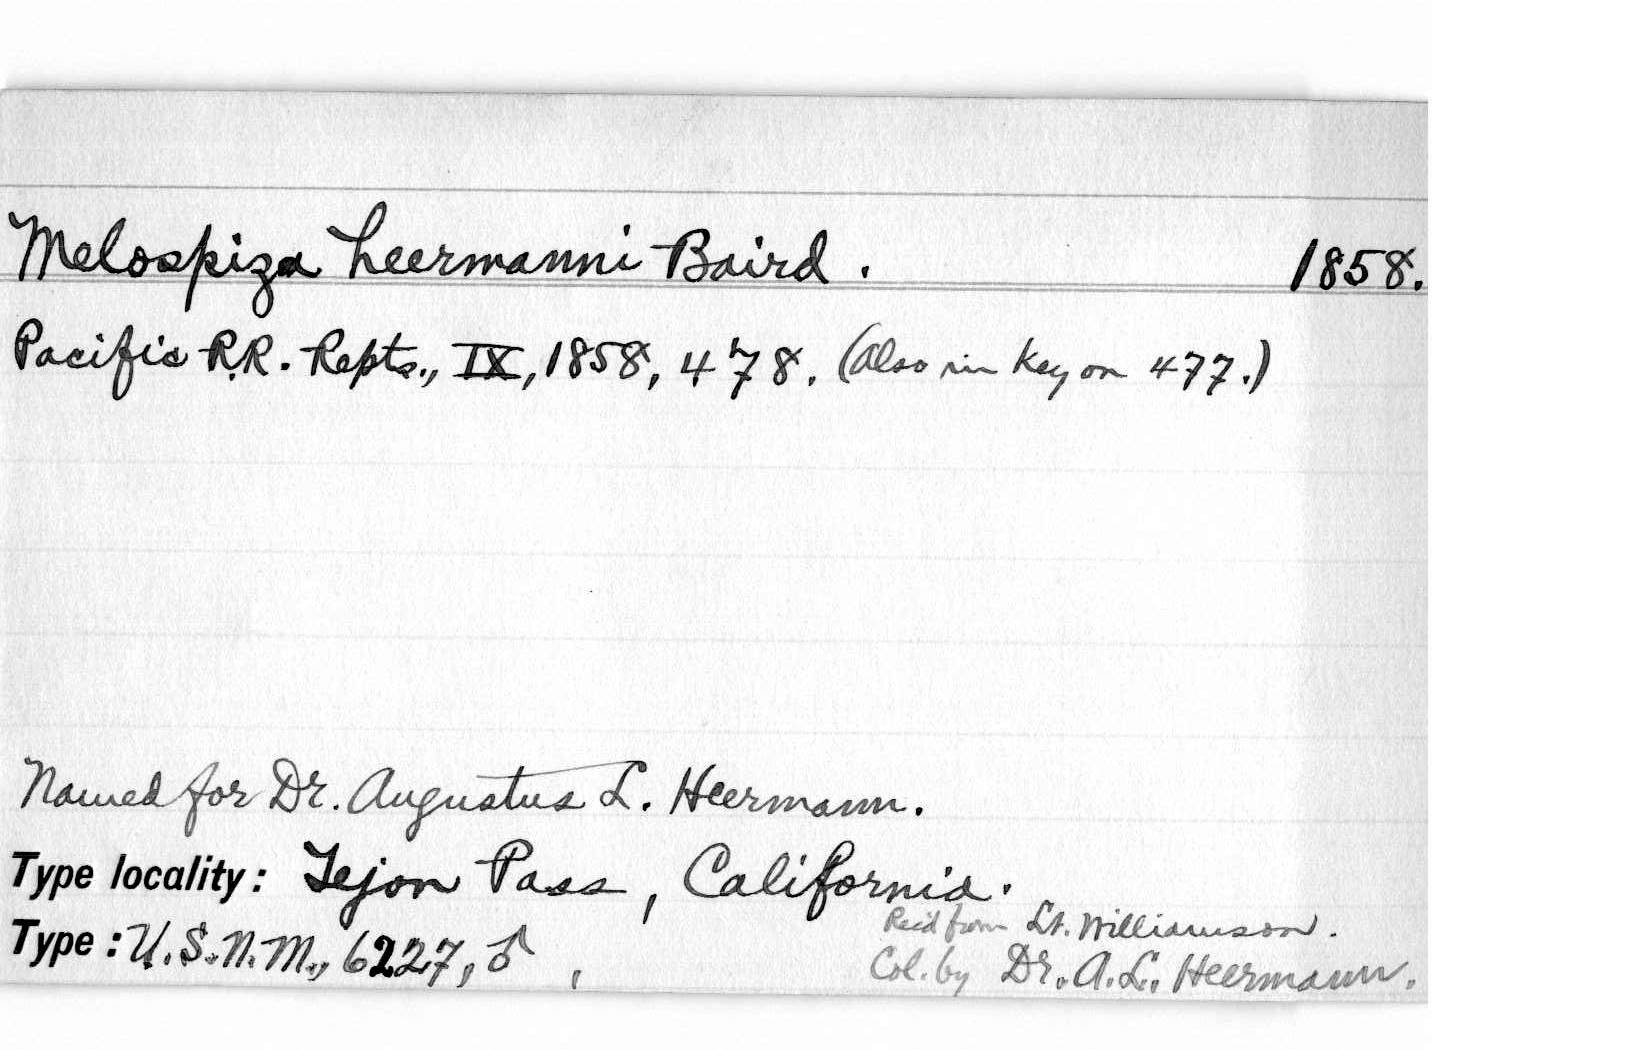 Melospiza heermanni Baird. 1858.
Pacific R.R. Repts., IX, 1858, 478. (Also in key on 477.)
Named for Dr. Augustus L. Heermann.
Type locality: Tejon Pass, California.
Rec'd from Lt. Williamson.
Type: U.S.N.M., 6227, ♂,
Col. by Dr. A.L. Heermann.